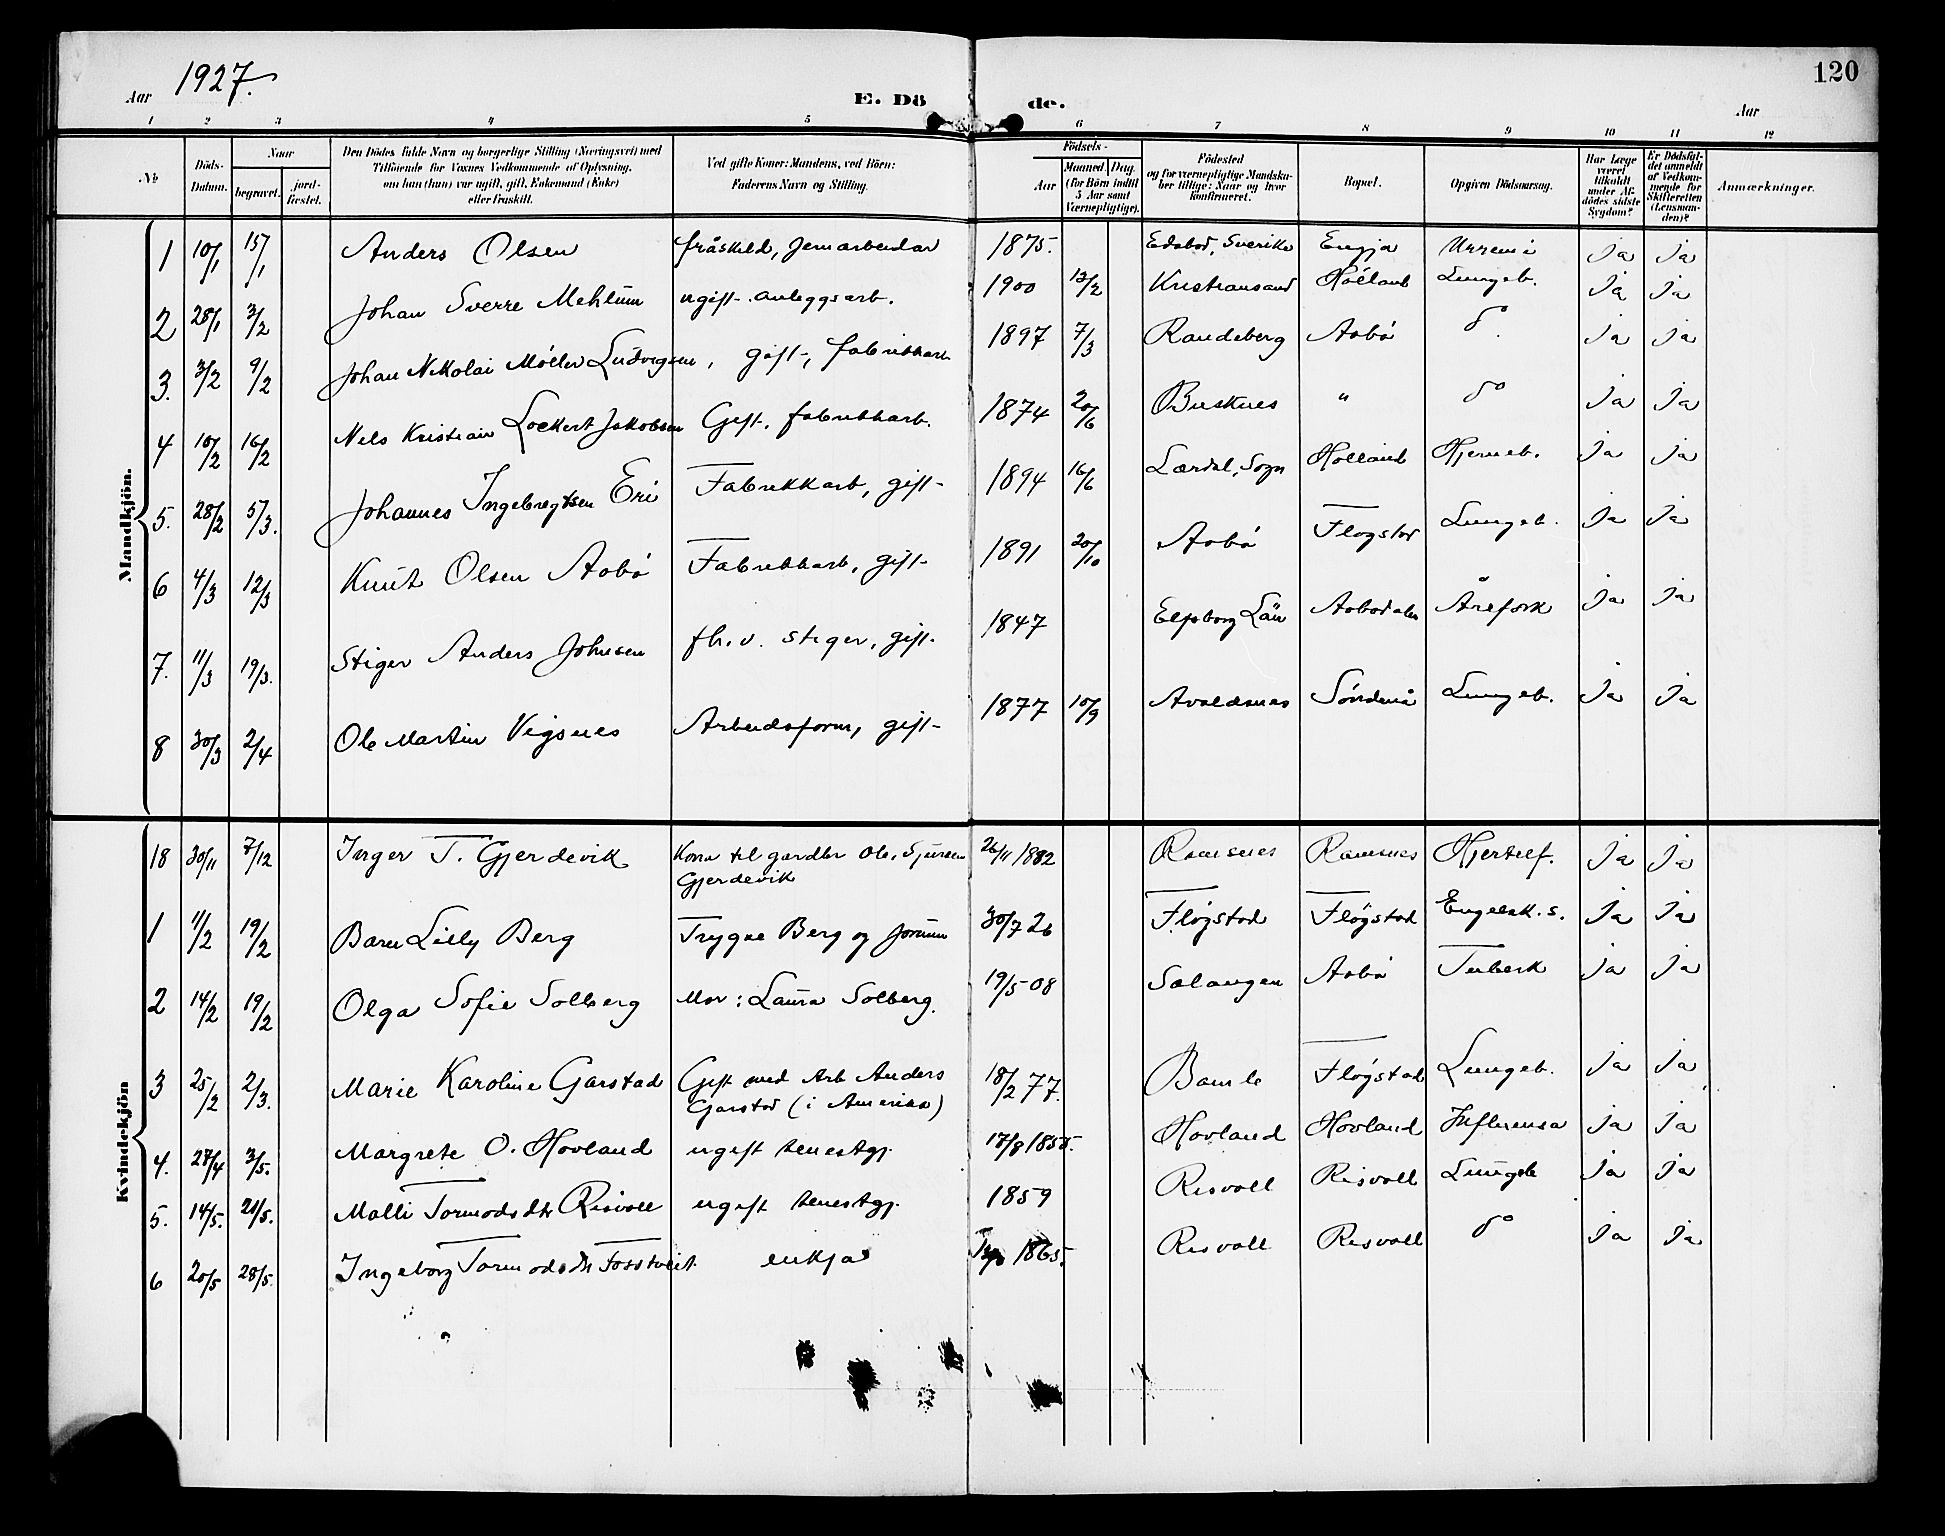 120
Aar 1927.
E. Döde.
Aar
1 2 3 4 5 6 7 8 9 10 11 12
№
Döds-Datum.
Naar
begravet.
jordfæstet.
Den Dödes fulde Navn og borgerlige Stilling (Næringsvei) med Tilföiende for Voxnes Vedkommende af Oplysning, om han (hun) var ugift, gift, Enkemand (Enke) eller fraskilt.
Ved gifte Koner: Mandens, ved Börn: Faderens Navn og Stilling.
Födsels-
Aar
Maaned. Dag. (for Börn indtil 5 Aar samt Værnepligtige).
Födested og for værnepligtige Mandskaber tillige: Naar og hvor konfirmeret.
Bopæl.
Opgiven Dödsaarsag.
Har Læge været tilkaldt under Afdödes sidste Sygdom?
Er Dödsfaldet anmeldt af Vedkommende for Skifteretten (Lensmanden)?
Anmærkninger.
Mandkjön.
1 10/1 15/1 Anders Olsen fråskild, jernarbeidar 1875. Sverike Ja Ja
2 28/1 3/2 Johan Sverre Mehlum ugift anleggsarb. 1900 12/2 Kristiansand Holland Lungeb. Ja Ja
3. 3/2 9/2 Johan Nikolai Möller Ludvigsen, gift, fabrikkarb 1897 7/3 Randeberg Aabö do. Ja Ja
4 10/2 16/2 Nels Kristian Lockert Jakobsen Gift, fabrikkarb. 1874 20/6 Busknes " do Ja Ja
5. 28/2 5/3. Johannes Ingebregtsen Eri Fabrikkarb, gift 1894 16/6 Lærdal, Sogn Holland Hjerneb. Ja Ja
6 4/3 12/3 Knut Olsen Aabö Fabrikkarb, gift 1891 20/10 Aabö Flogstad Lungeb. Ja Ja
7. 11/3 19/3. Stiger Anders Johnsen fh.v. stiger, gift. 1847 Elfsborg Län Aabödalen Årefork Ja Ja
8 30/3 2/4 Ole Martin Vigsnes Arbeidsform, gift 1877 10/9 Avaldsnes Söndenå Lungeb. Ja Ja
Kvindekjön
18 30/11 7/12 Inger T. Gjerdevik Kona til gardbr Ole Sjursen Gjerdevik 26/11 1882 Ramsnes Ramsnes Hjertelf. Ja Ja
1 11/2 19/2 Barn Lilly Berg Trygve Berg og Jorunn 30/7 26 Flögstad Flögstad Engelsk. s. Ja Ja
2 14/2 19/2 Olga Sofie Solberg Mor: Laura Solberg. 19/5 08 Salangen Aabö Tuberk Ja Ja
3 25/2 2/3. Marie Karoline Garstad Gift med Arb Anders Garstad (i Amerika) 18/2 77. Bamle Flögstad Lungeb. Ja Ja
4. 27/4 3/5. Margrete O. Hovland ugift tenestgj. 17/8 1855. Hovland Hovland Influensa Ja Ja
5. 14/5. 21/5. Malli Tormodsdtr Risvoll ugift tenestgj. 1859 Risvoll Risvoll Lungeb Ja Ja
6 20/5 28/5. Ingeborg Tormodsdtr Fosstveit enkja 1865. Risvoll Risvoll do Ja Ja